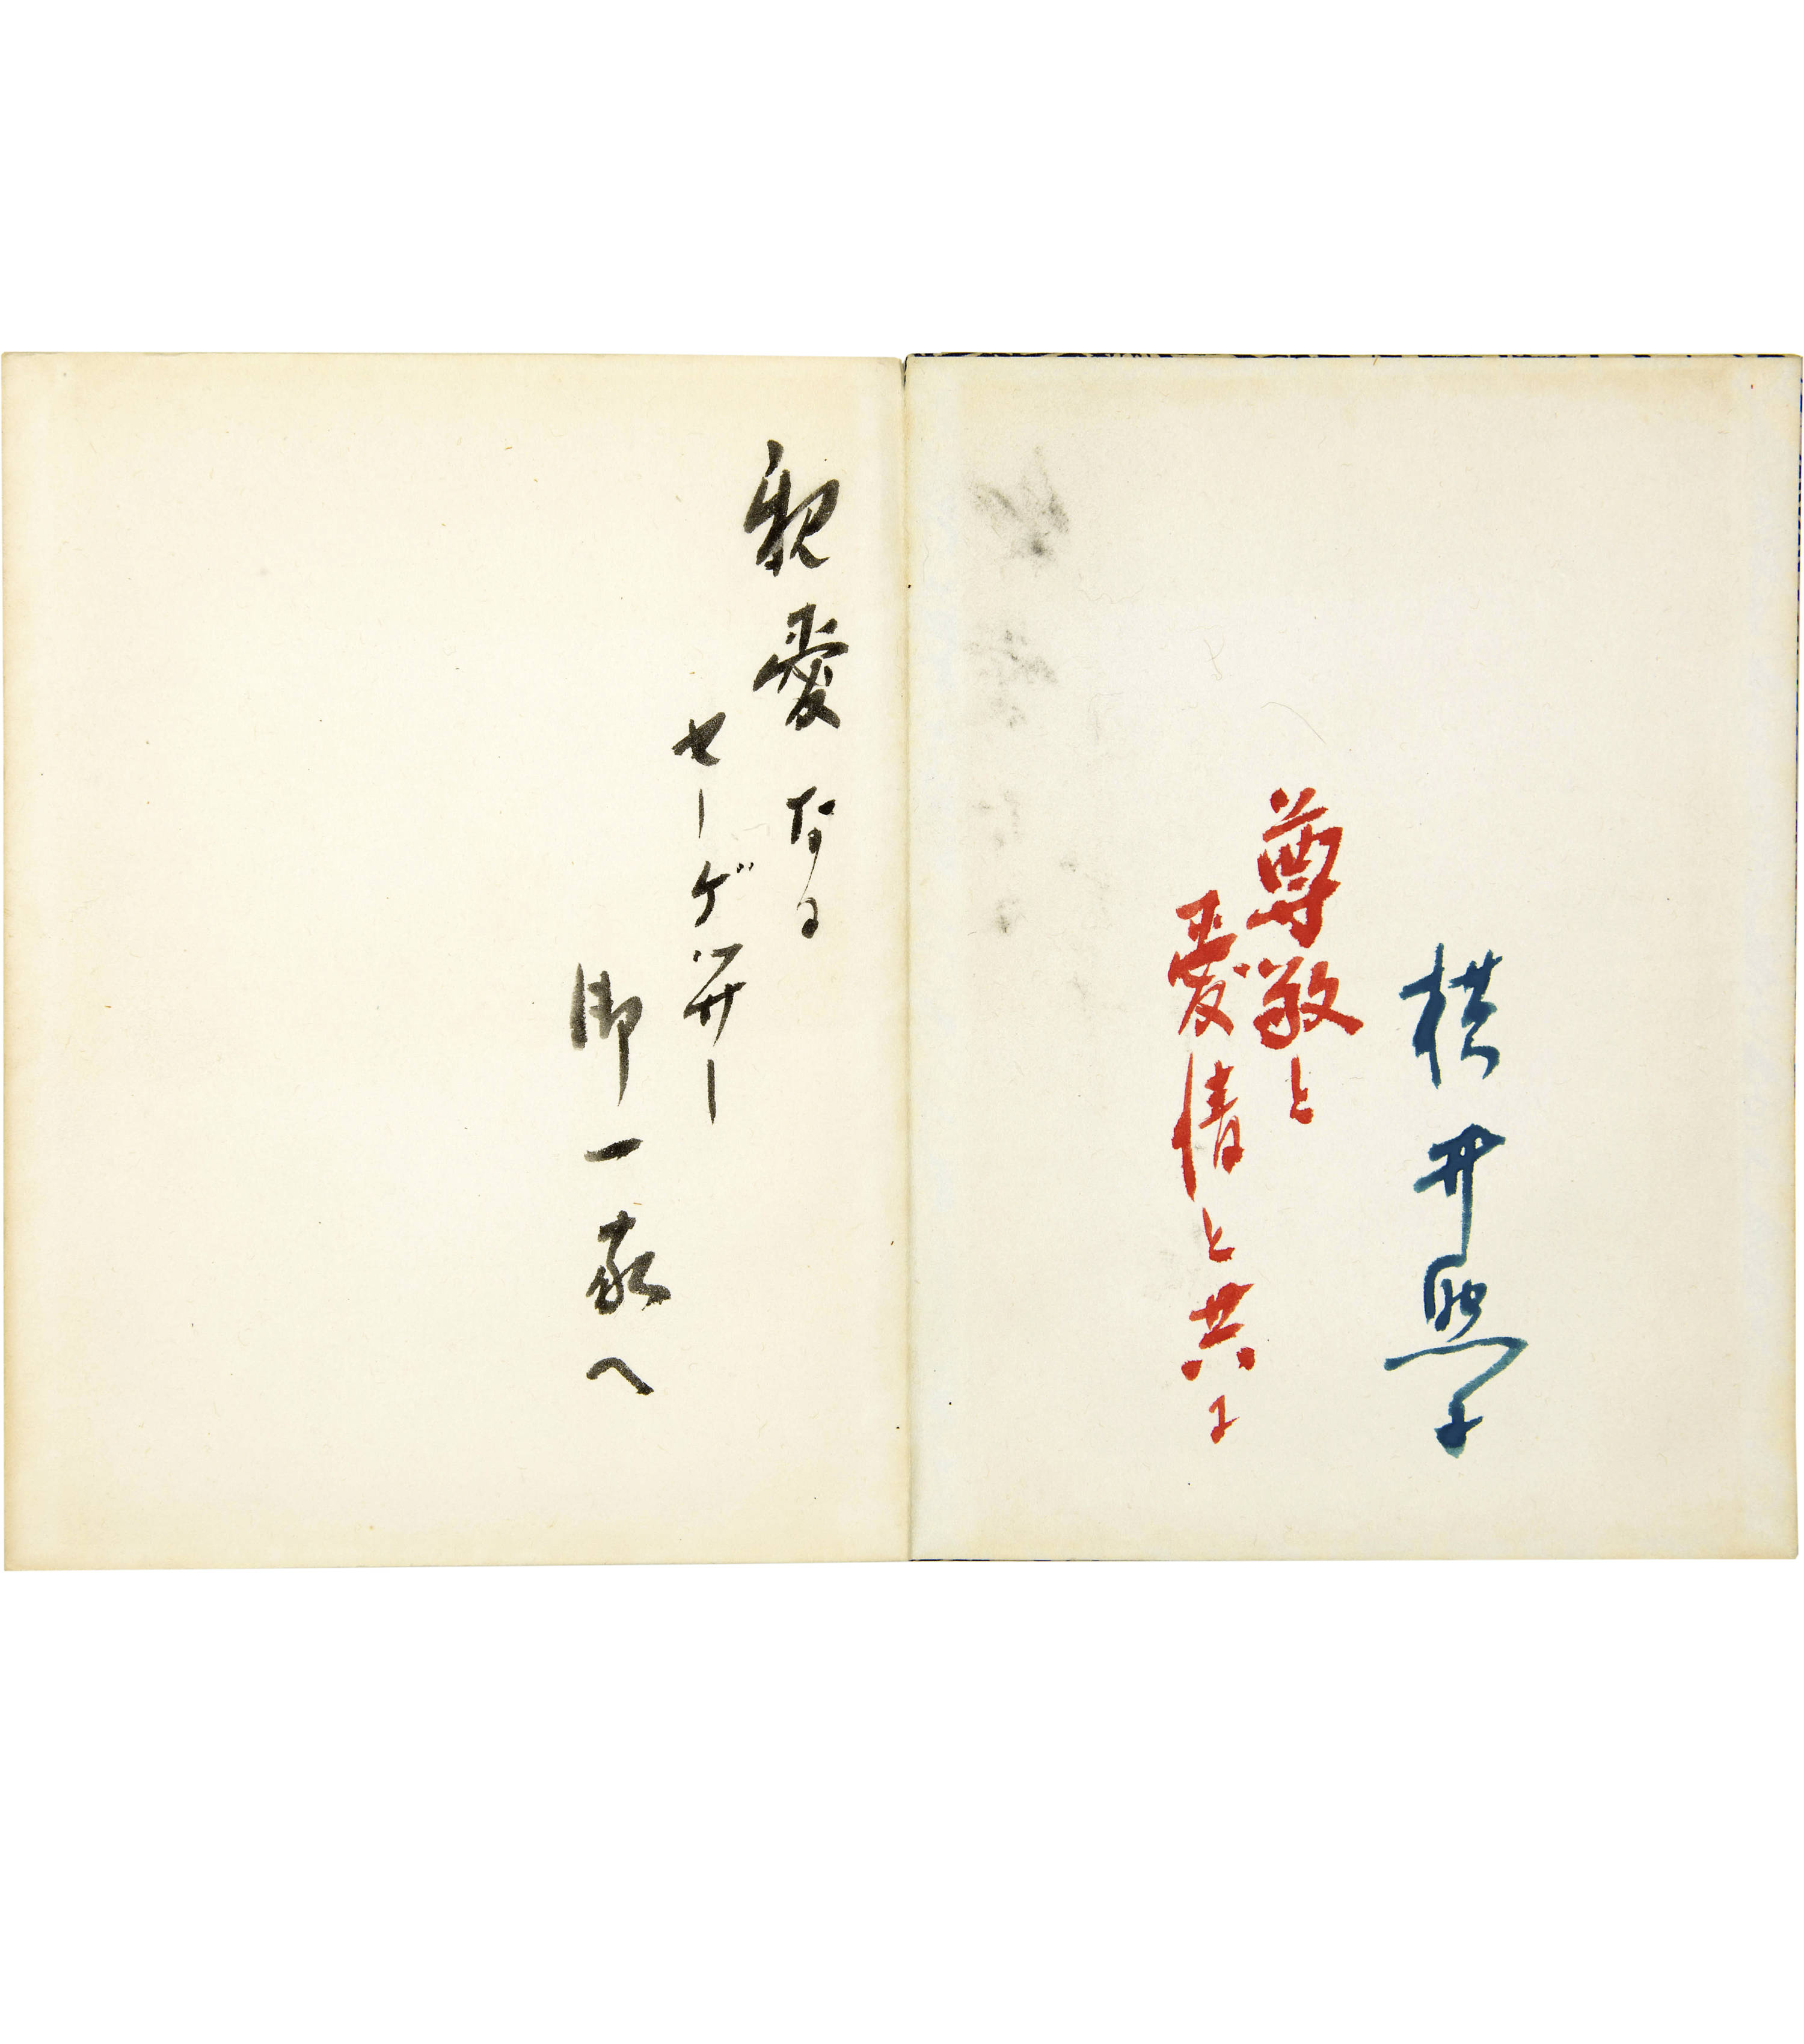 横井照子
尊敬と
愛情と共に
親愛なる
セーゲッサー
御一家へ